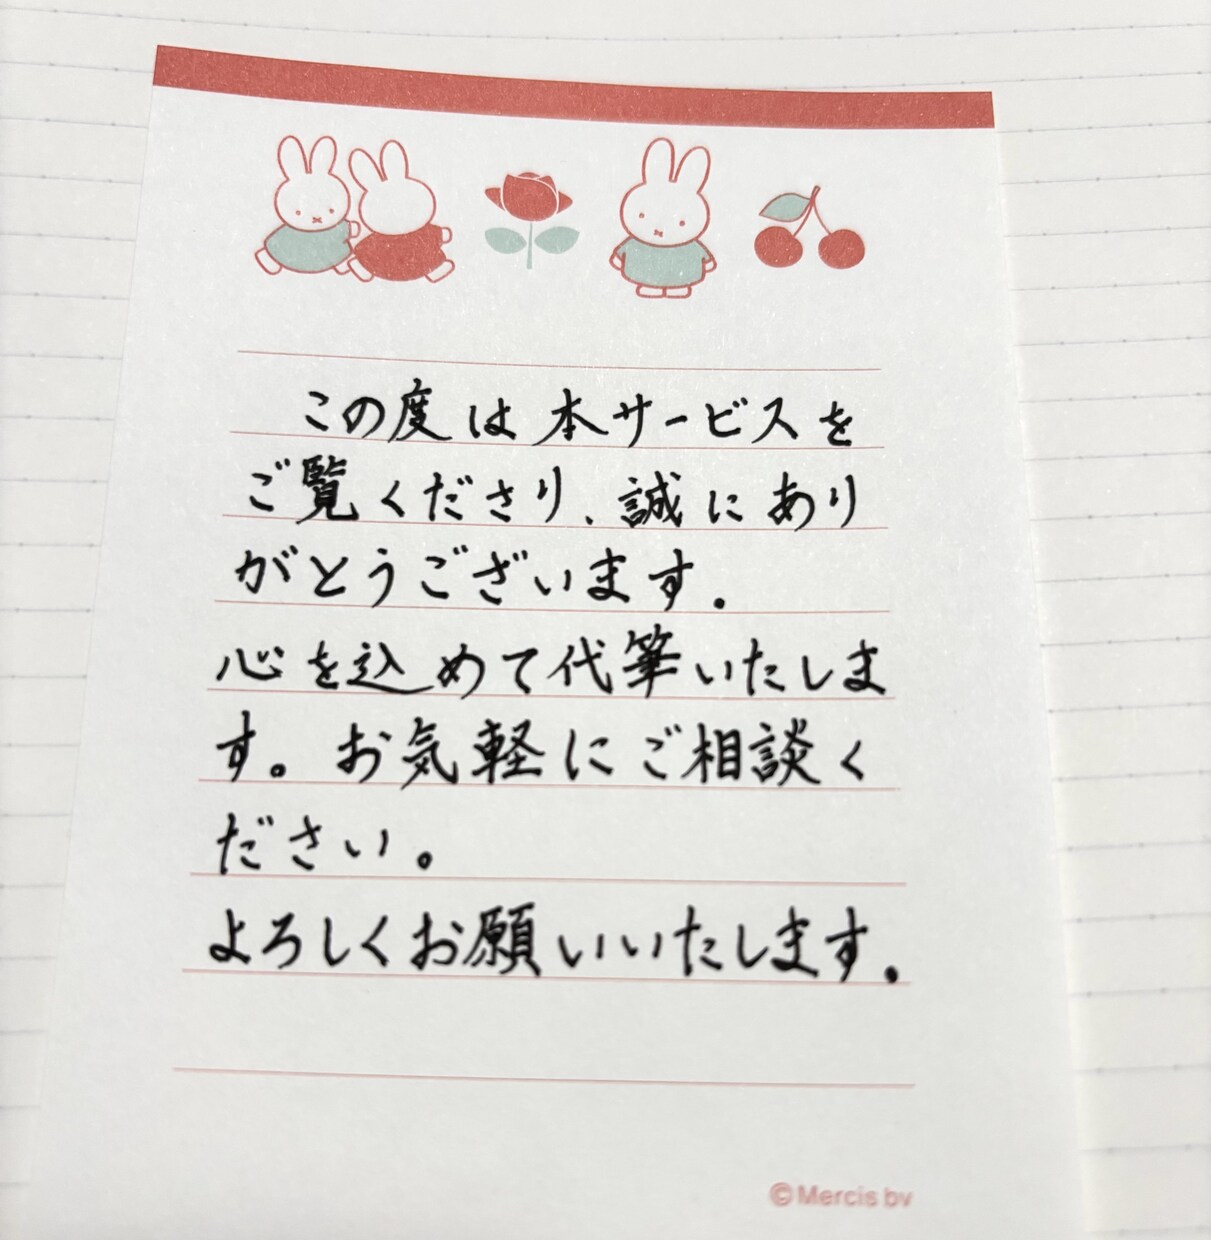 この度は本サービスを
ご覧くださり、誠にあり
がとうございます。
心を込めて代筆いたしま
す。お気軽にご相談く
ださい。
よろしくお願いいたします。
©Mercis bv